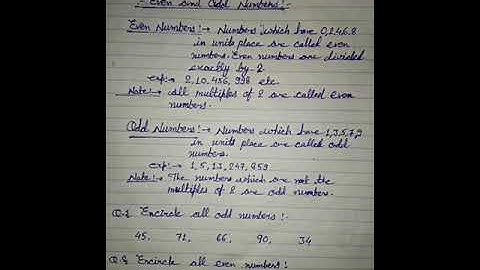 :- Even and Odd Numbers:-
Even Numbers:→ Numbers which have 0,2,4,6,8
in units place are called even
numbers. Even numbers are divided
exactly by 2
exp:→ 2, 10, 456, 998 etc
Note:→ All multiples of 2 are called even
numbers.
Odd Numbers:→ Numbers which have 1,3,5,7,9
in units place are called odd
numbers.
exp:→ 1, 5, 13, 247, 959
Note:→ The numbers which are not the
multiples of 2 are odd numbers.
Q.1 Encircle all odd numbers:-
45, 71, 66, 90, 34
Q.2 Encircle all even numbers:-